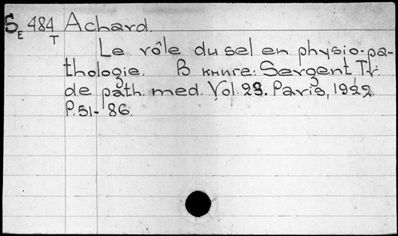 SE 484 T Achard.
Le rôle du sel en physio-pa-
thologie. В книге: Sergent, Tr.
de path. med. Vol. 23. Paris, 1922.
P. 51-86.